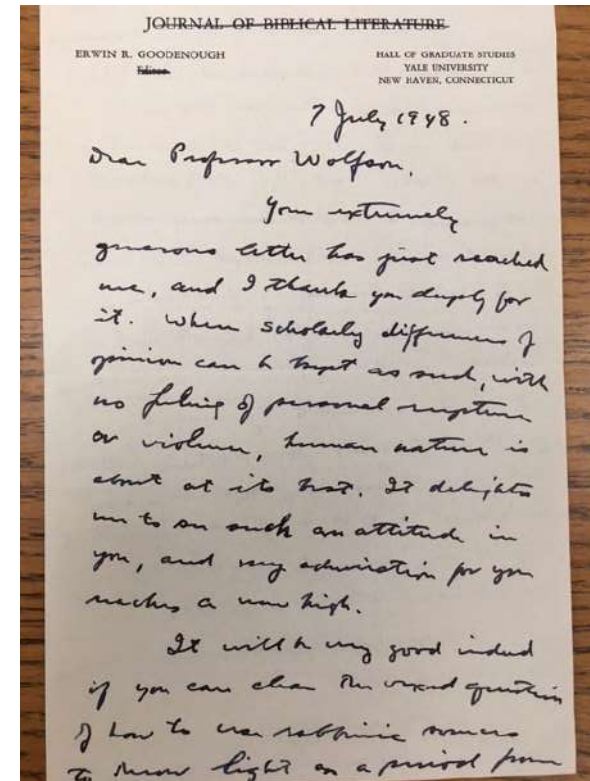 JOURNAL OF BIBLICAL LITERATURE
ERWIN R. GOODENOUGH
Editor
HALL OF GRADUATE STUDIES
YALE UNIVERSITY
NEW HAVEN, CONNECTICUT
7 July 1948.
Dear Professor Wolfson,
Your extremely
generous letter has just reached
me, and I thank you deeply for
it. When scholarly differences of
opinion can be kept as such, with
no feeling of personal rupture
or violence, human nature is
about at its best. It delights
me to see such an attitude in
you, and my admiration for you
reaches a new high.
It will be very good indeed
if you can clear the vexed question
of how to use rabbinic sources
to throw light on a period from